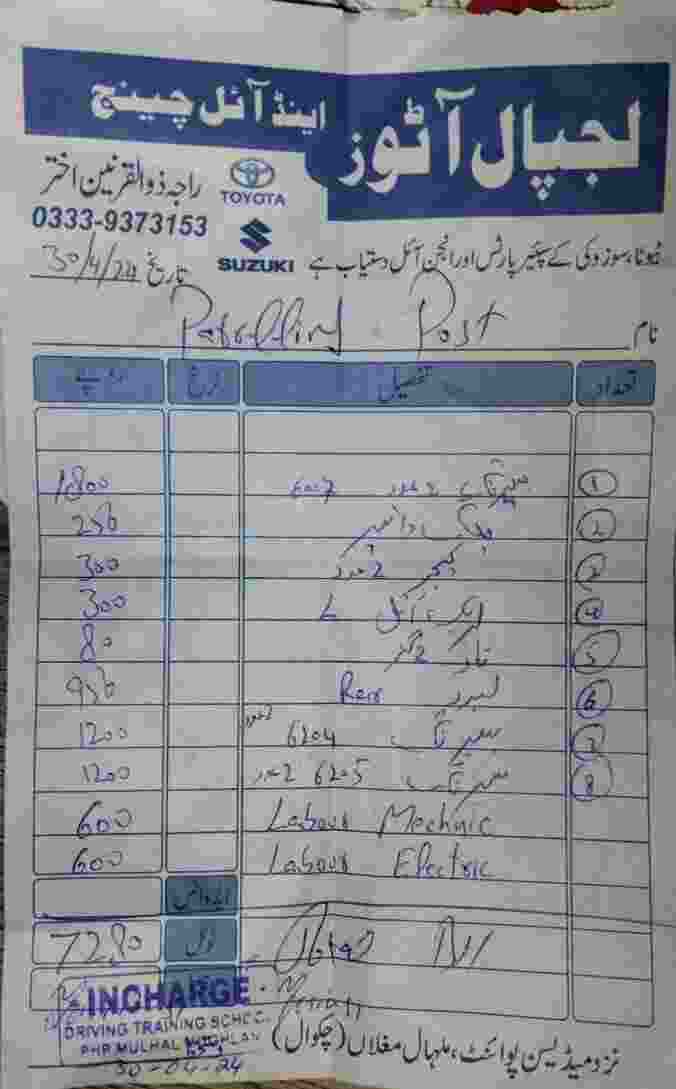 لجپال آٹوز اینڈ آئل چینج
راجہ ذوالقرنین اختر
TOYOTA
0333-9373153
SUZUKI
ٹیوٹا، سوزوکی کے سپئیر پارٹس اور انجن آئل دستیاب ہے
تاریخ 30/4/24
نام Patrolling Post
تعداد تفصیل نرخ روپے
1 2 عدد 6007 1800
2 250
2 عدد 300
4 300
5 80
6 Rear 950
7 6204 2 عدد 1200
8 6205 2 عدد 1200
Labour Mechnic 600
Labour Electric 600
ایڈوانس
ٹوٹل 7280
INCHARGE
DRIVING TRAINING SCHOOL
PHP MULHAL MUGHLAN
30-04-24
نزد میڈیسن پوائنٹ، ملہال مغلاں (چکوال)